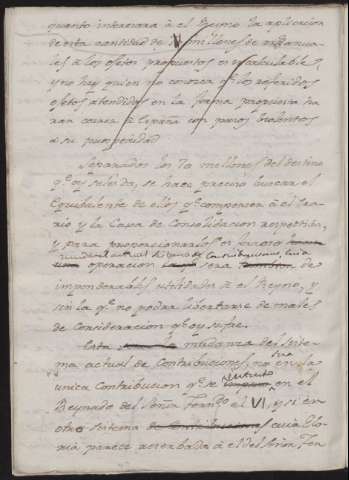 quanto interesara á el Reyno la aplicacion
de esta cantidad de millones de anuales
á los efetos propuestos es
y no hay quien no conozca q.e los referidos
efetos atendidos en la forma propuesta
á España con pasos
a su prosperidad
Separados los 70 millones del destino
q.e oy se les da, se hace preciso buscar el
Equibalente de ellos q.e compense á el Era
rio y la Caxa de Consolidacion respectiba,
y para proporcionarlos es
actual Sistema de Contribuciones, cuia
operacion sera de
imponderables utilidades á el Reyno, y
sin la q.e no podra libertarse de males
de Consideracion q.e oy sufre.
Esta mudanza del Siste
ma actual de Contribuciones, no es la
unica Contribucion q.e se en el
Reynado del Señor Fern.do el VI, y si en
otro sistema cuia Glo
ria parece reserbada á el del Señor Fer